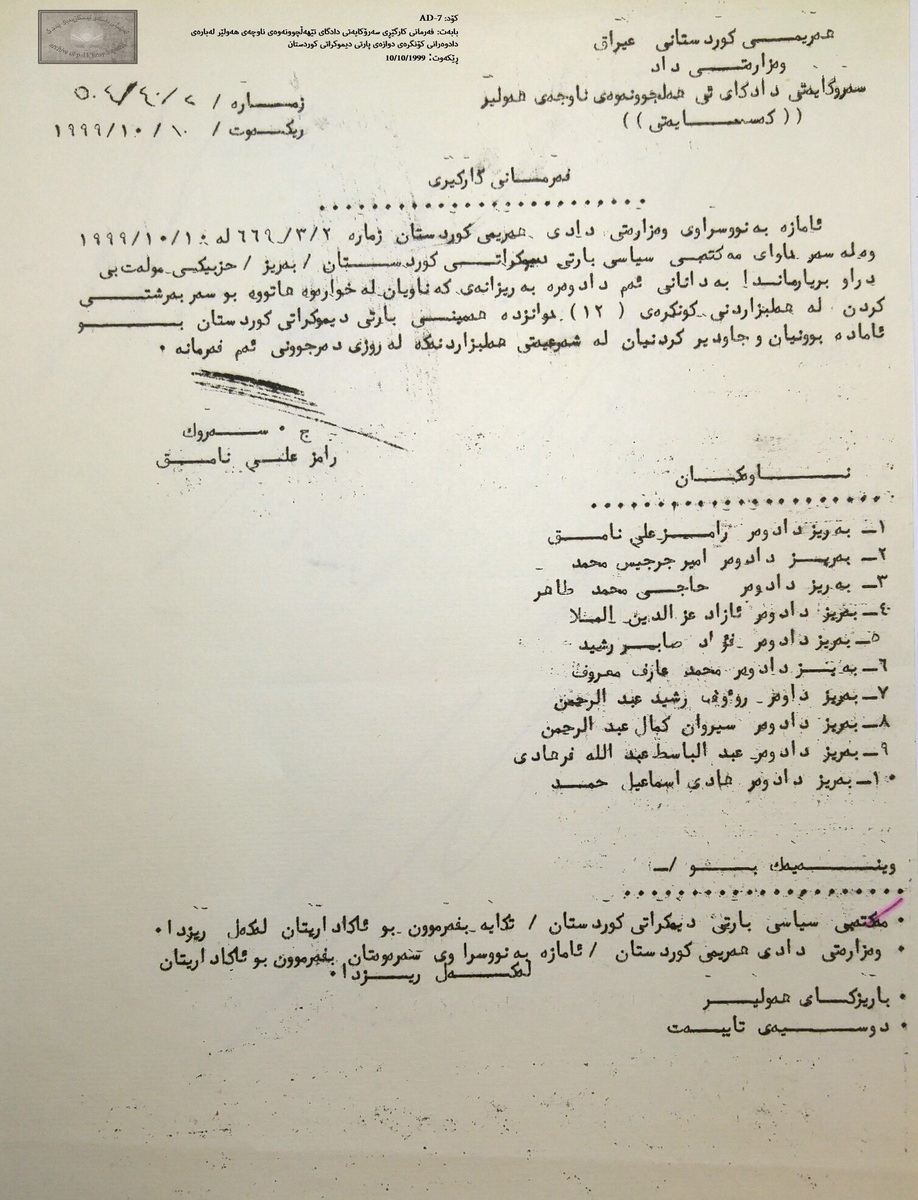 کۆد: AD-7
بابەت: فەرمانی کارگێڕی سەرۆکایەتی دادگای تێهەڵچوونەوەی ناوچەی هەولێر لەبارەی
دادوەرانی کۆنگرەی دوازەی پارتی دیموکراتی کوردستان
ڕێکەوت: 10/10/1999
هەریمی کوردستانی عیراق
وەزارەتی داد
سەروکایەتی دادگای تی هەلچوونەوەی ناوچەی هەولیر
((کەسایەتی))
زمارە / ٢ /
ریکەوت / ١٠ / ١٠ / ١٩٩٩
فەرمانی کارگیری
ئاماژە بە نووسراوی وەزارەتی دادی هەریمی کوردستان زمارە ٦٦٩/٣/٢ لە ١٩٩٩/١٠/١٠
وەلە سەر داوای مەکتەبی سیاسی بارتی دیموکراتی کوردستان / بەریز / حزبیکی مولەت بی
دراو بریارماندا بە دانانی ئەم دادوەرە بە ریزانەی کە ناویان لە خوارەوە هاتووە بو سەر بەرشتی
کردن لە هەلبژاردنی کونکرەی (١٢) دوانزدە هەمینی بارتی دیموکراتی کوردستان بو
ئامادە بوونیان و جاودیر کردنیان لە شەرعیەتی هەلبژاردنەکە لە روژی دەرچوونی ئەم فەرمانە ٠
ج ٠ سەروک
رامز علی نامق
ناوەکان
١ـ بەریز دادوەر رامز علي نامق
٢ـ بەریز دادوەر امیر جرجیس محمد
٣ـ بەریز دادوەر حاجی محمد طاهر
٤ـ بەریز دادوەر ئازاد عز الدین الملا
٥ـ بەریز دادوەر فؤاد صابر رشید
٦ـ بەریز دادوەر محمد عارف معروف
٧ـ بەریز داوەر روئوف رشید عبد الرحمن
٨ـ بەریز دادوەر سیروان کمال عبد الرحمن
٩ـ بەریز دادوەر عبد الباسط عبد الله فرهادی
١٠ـ بەریز دادوەر هادي اسماعیل حمد
وینەیەك بو /ـ
• مەکتەبی سیاسی بارتی دیمکراتی کوردستان / تکایە بفەرموون بو ئاکاداریتان لەکەل ریزدا ٠
• وەزارەتی دادی هەریمی کوردستان / ئامازە بە نووسراوی سەرەوەتان بفەرموون بو ئاکاداریتان
لەکەل ریزدا ٠
• باریزکای هەولیر
• دوسیەی تایبەت